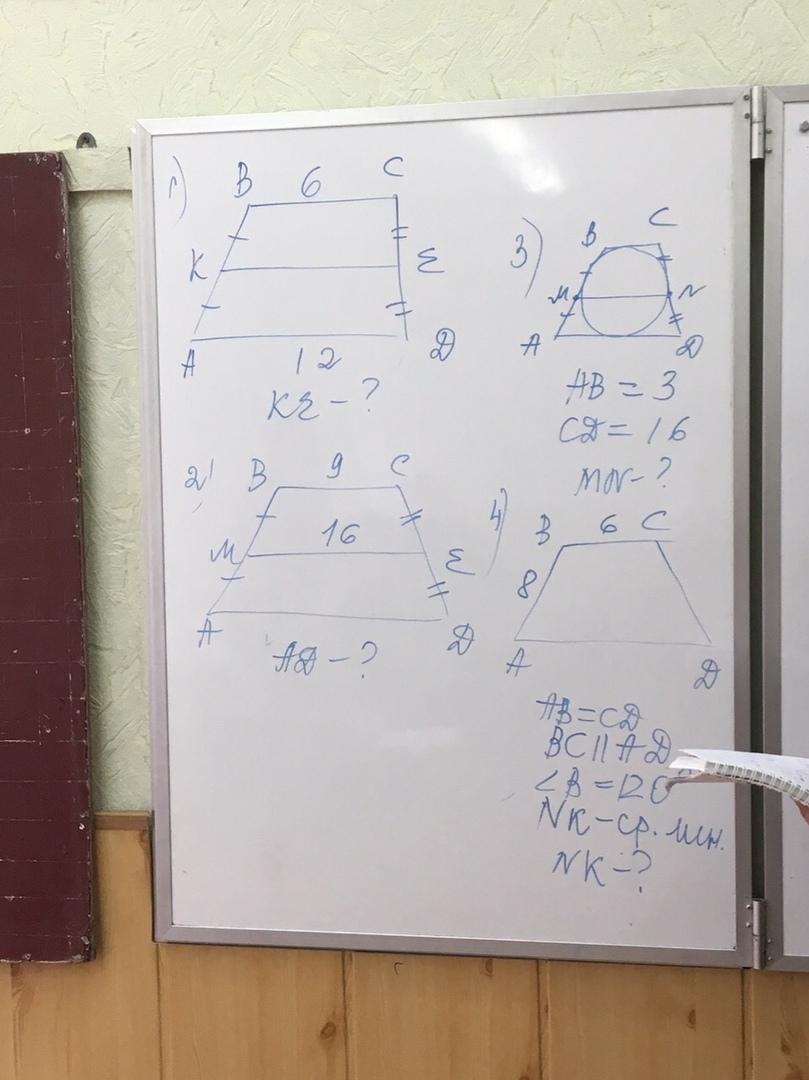 1)
B 6 C
K E
A 12 D
KE - ?
2)
B 9 C
M 16 E
A D
AD - ?
3)
B C
M N
A D
AB = 3
CD = 16
MN - ?
4)
B 6 C
8
A D
AB = CD
BC || AD
∠B = 120°
NK - ср. лин.
NK - ?